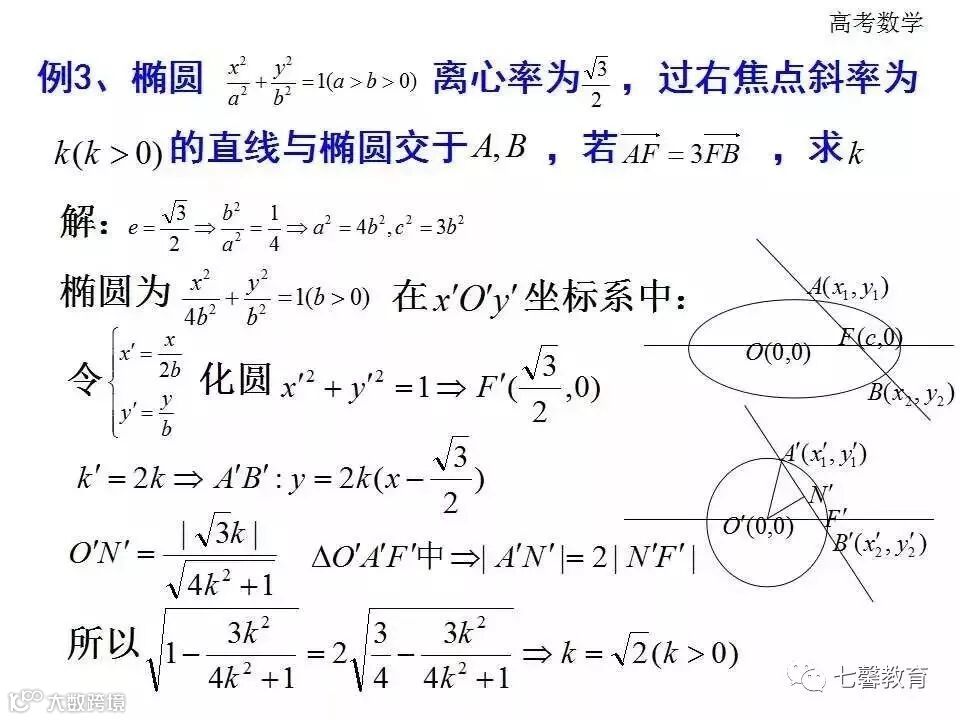 高考数学
例3、椭圆 x²/a² + y²/b² = 1(a > b > 0) 离心率为 √3/2 ，过右焦点斜率为
k(k > 0) 的直线与椭圆交于 A, B ，若 \overrightarrow{AF} = 3\overrightarrow{FB} ，求 k
解：e = √3/2 ⇒ b²/a² = 1/4 ⇒ a² = 4b², c² = 3b²
椭圆为 x²/4b² + y²/b² = 1(b > 0) 在 x′O′y′ 坐标系中：
令 { x′ = x/2b  y′ = y/b 化圆 x′² + y′² = 1 ⇒ F′(√3/2, 0)
k′ = 2k ⇒ A′B′ : y = 2k(x − √3/2)
O′N′ = |√3k| / √(4k² + 1) ΔO′A′F′中 ⇒ | A′N′ |= 2 | N′F′ |
所以 √(1 − 3k²/(4k² + 1)) = 2√(3/4 − 3k²/(4k² + 1)) ⇒ k = √2(k > 0)
A(x₁, y₁)
F(c,0)
O(0,0)
B(x₂, y₂)
A′(x₁′, y₁′)
N′
F′
O′(0,0)
B′(x₂′, y₂′)
七馨教育
大数跨境